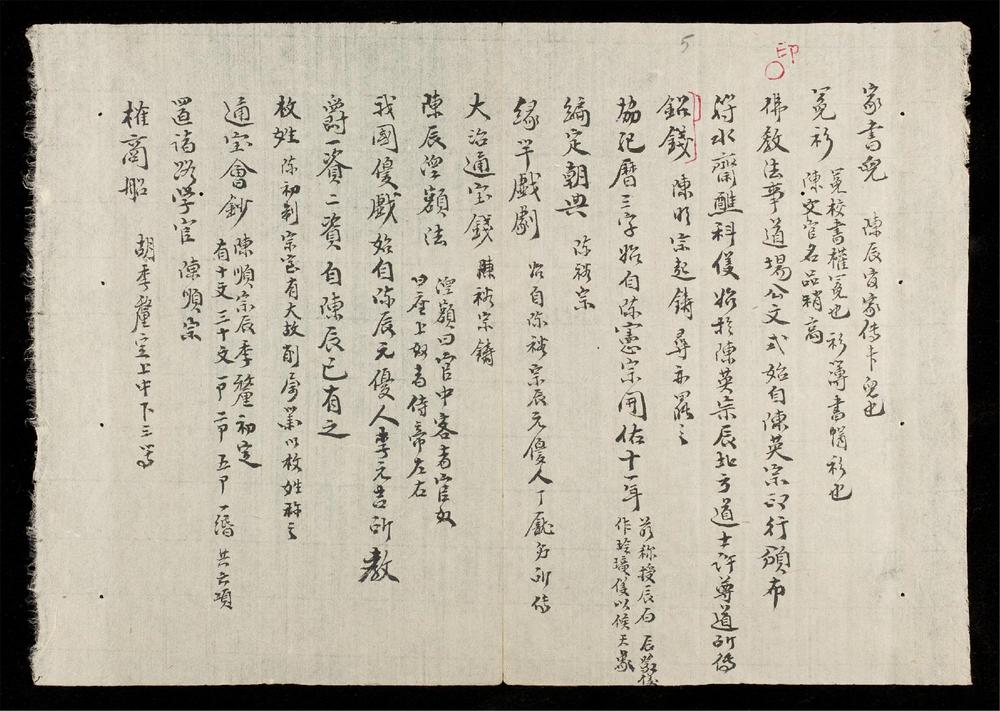 5
印
家書兒 陳辰安家傳卡兒也
冕衫 冕校書權冕也 衫簿書帽衫也
陳文官名品稍高
佛教法事道場公文式始自陳英宗印行頒布
符水齋醮科儀始於陳英宗辰北方道士許尊道所傳
鉛錢 陳明宗起鑄尋亦罷之
協紀曆三字始自陳憲宗開佑十一年 前称授辰
作玲瓏儀以候天象
編定朝典 陳裕宗
緣竿戲劇 始自陳裕宗辰元優人丁龐身所傳
大治通宝錢 陳裕宗鑄
陳辰淫額法 淫額曰官中客者官奴
曰座上奴者侍帝左右
我國優戲始自陳辰元優人李元吉所教
爵一資二資自陳辰已有之
枚姓 陳初制宗室有大故削屬籍以枚姓称之
通宝會鈔 陳順宗辰季犛初定
有十文三十文一陌二陌五陌一緡共六項
置諸路學官 陳順宗
榷商船 胡季犛定上中下三等